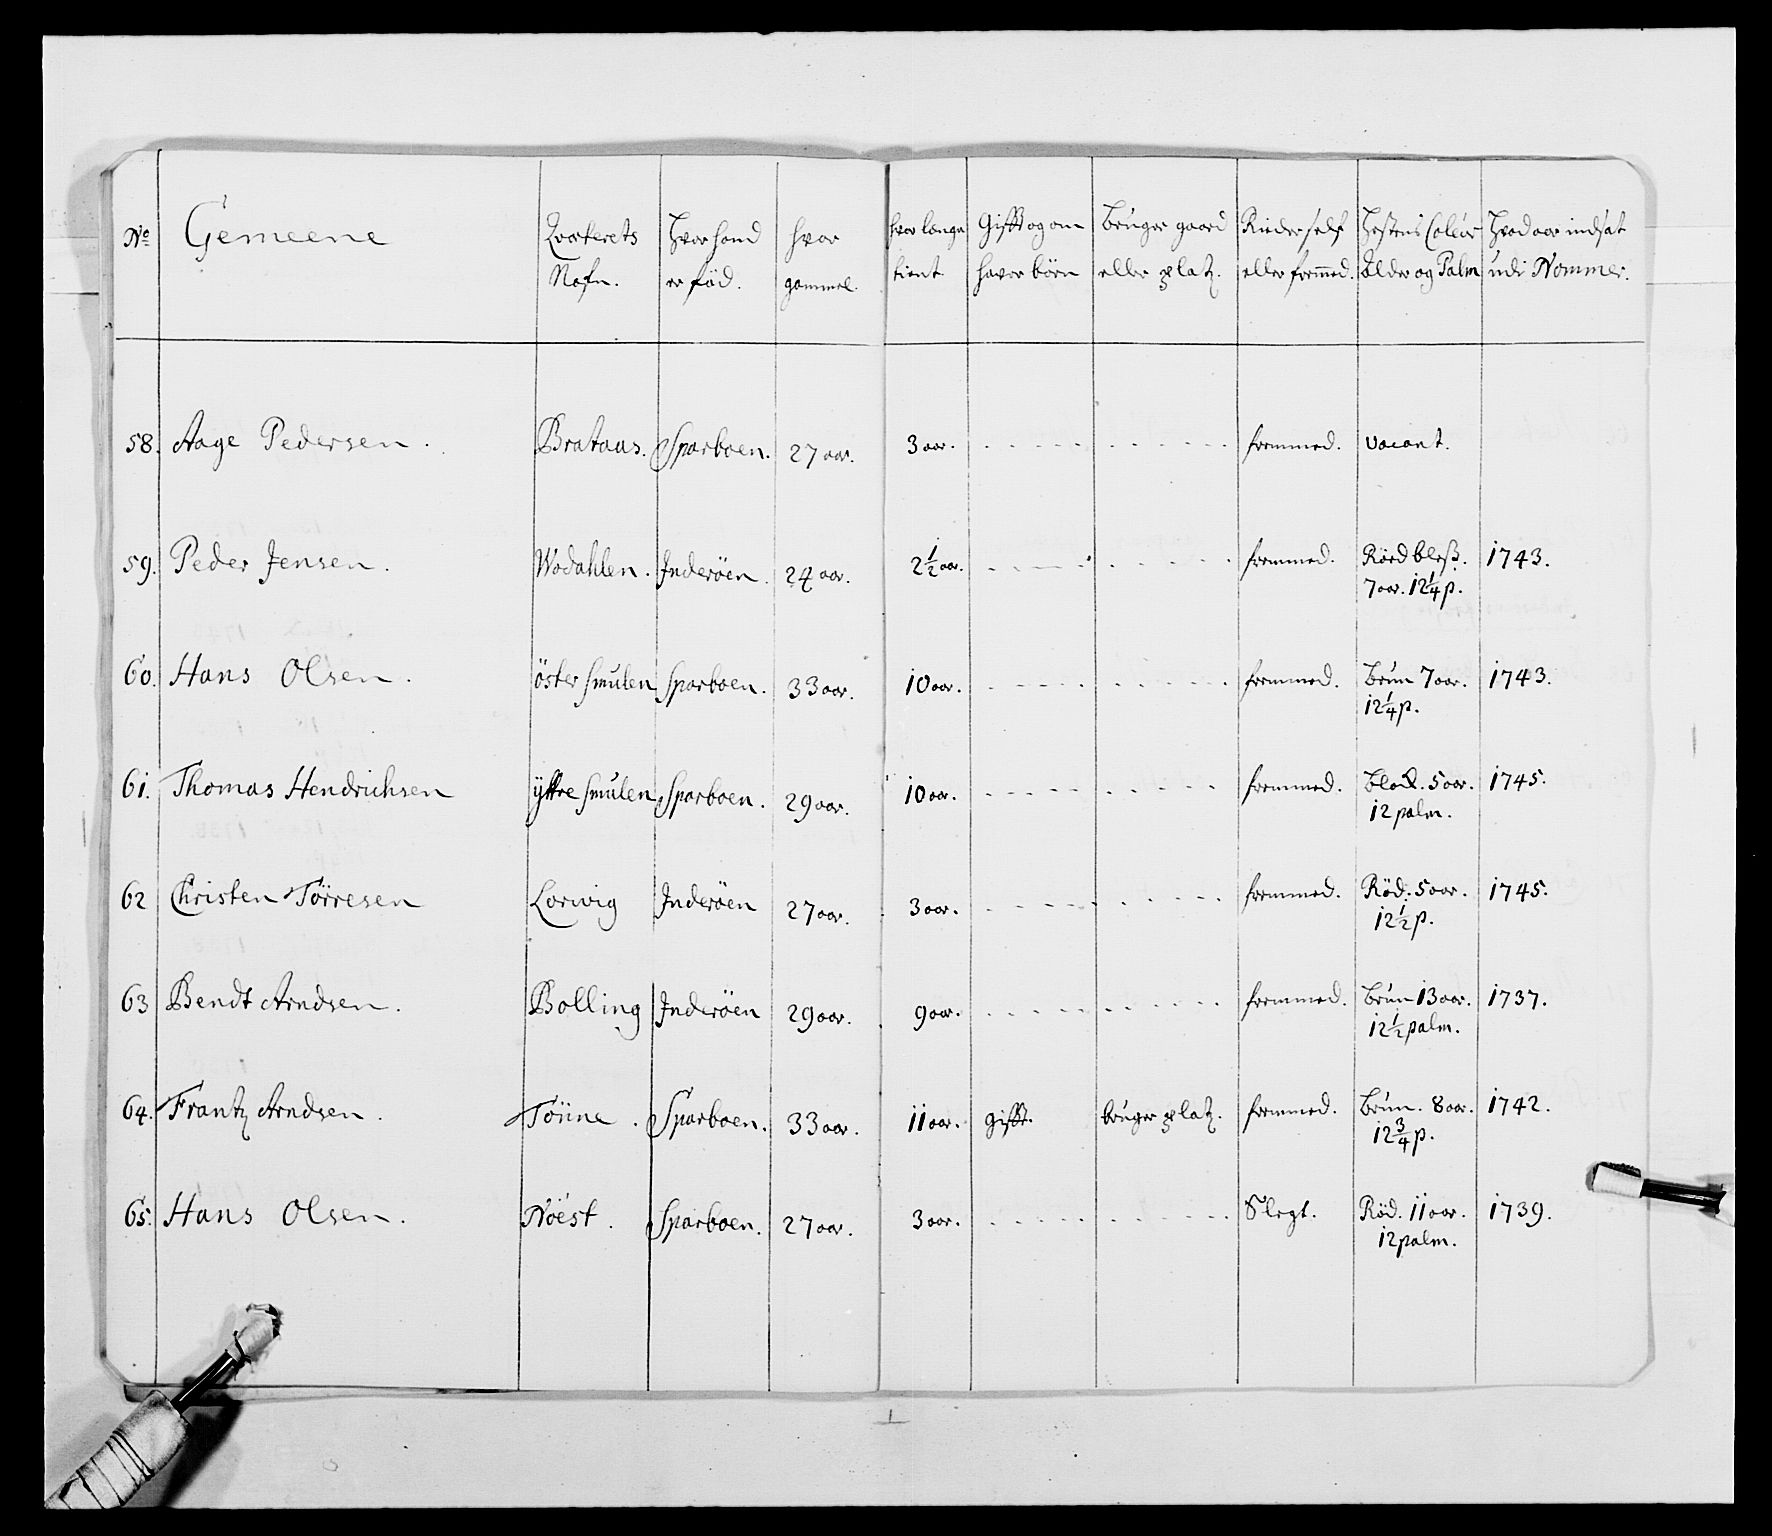 No Gemeene Qvarterets Nafn. Hvor hand er fød. hvor gammel. hvor længe tient Gifft og om haver børn bruger gaard eller platz. Rider self eller fremmed. Hestens Coleur Alder og Palm Hvad aar indsat udi Nommer.
58. Aage Pedersen. Brataas. Sparboen. 27 aar. 3 aar. fremmed. vacant.
59. Peder Jensen. Wodahlen. Inderøen. 24 aar. 2½ aar. fremmed. Rød bless. 1743.
7 aar. 12¼ p.
60. Hans Olsen. öster smulen Sparboen. 33 aar. 10 aar. fremmed. brun 7 aar. 1743.
12¼ p.
61. Thomas Hendrichsen ÿttre smulen Sparboen. 29 aar. 10 aar. fremmed. blak. 5 aar. 1745.
12 palm.
62 Christen Törresen Lorwig Inderöen 27 aar. 3 aar. fremmed. Röd. 5 aar. 1745.
12½ p.
63 Bendt Arndsen. Bolling Inderöen 29 aar. 9 aar. fremmed. brun 13 aar. 1737.
12½ palm.
64. Frantz Arndsen. Tönne. Sparboen. 33 aar. 11 aar. gifft. bruger platz. fremmed. brun. 8 aar. 1742.
12¾ p.
65. Hans Olsen. Nöest. Sparboen. 27 aar. 3 aar. Slegt. Röd. 11 aar. 1739.
12 palm.